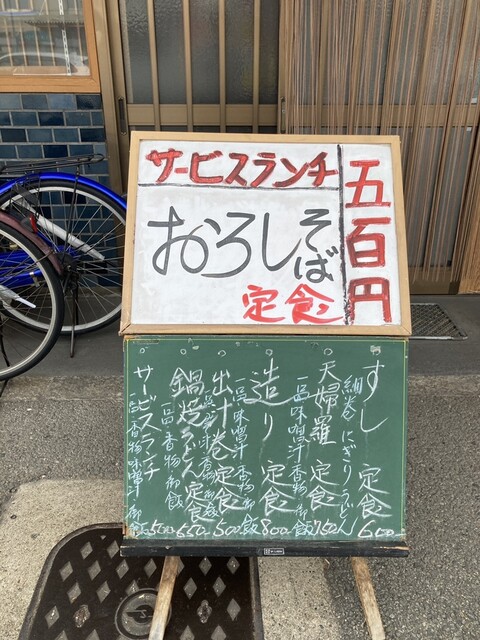 サービスランチ
五百円
おろしそば
定食
すし 定食 600
細巻 にぎり うどん
天婦羅 定食 750
一品 味噌汁 香物 御飯
造り 定食 800
一品 味噌汁 香物 御飯
出汁巻 定食 500
一品 味噌汁 香物 御飯
鍋焼うどん 定食 650
一品 香物 御飯
サービスランチ 500
一品 香物 味噌汁 御飯